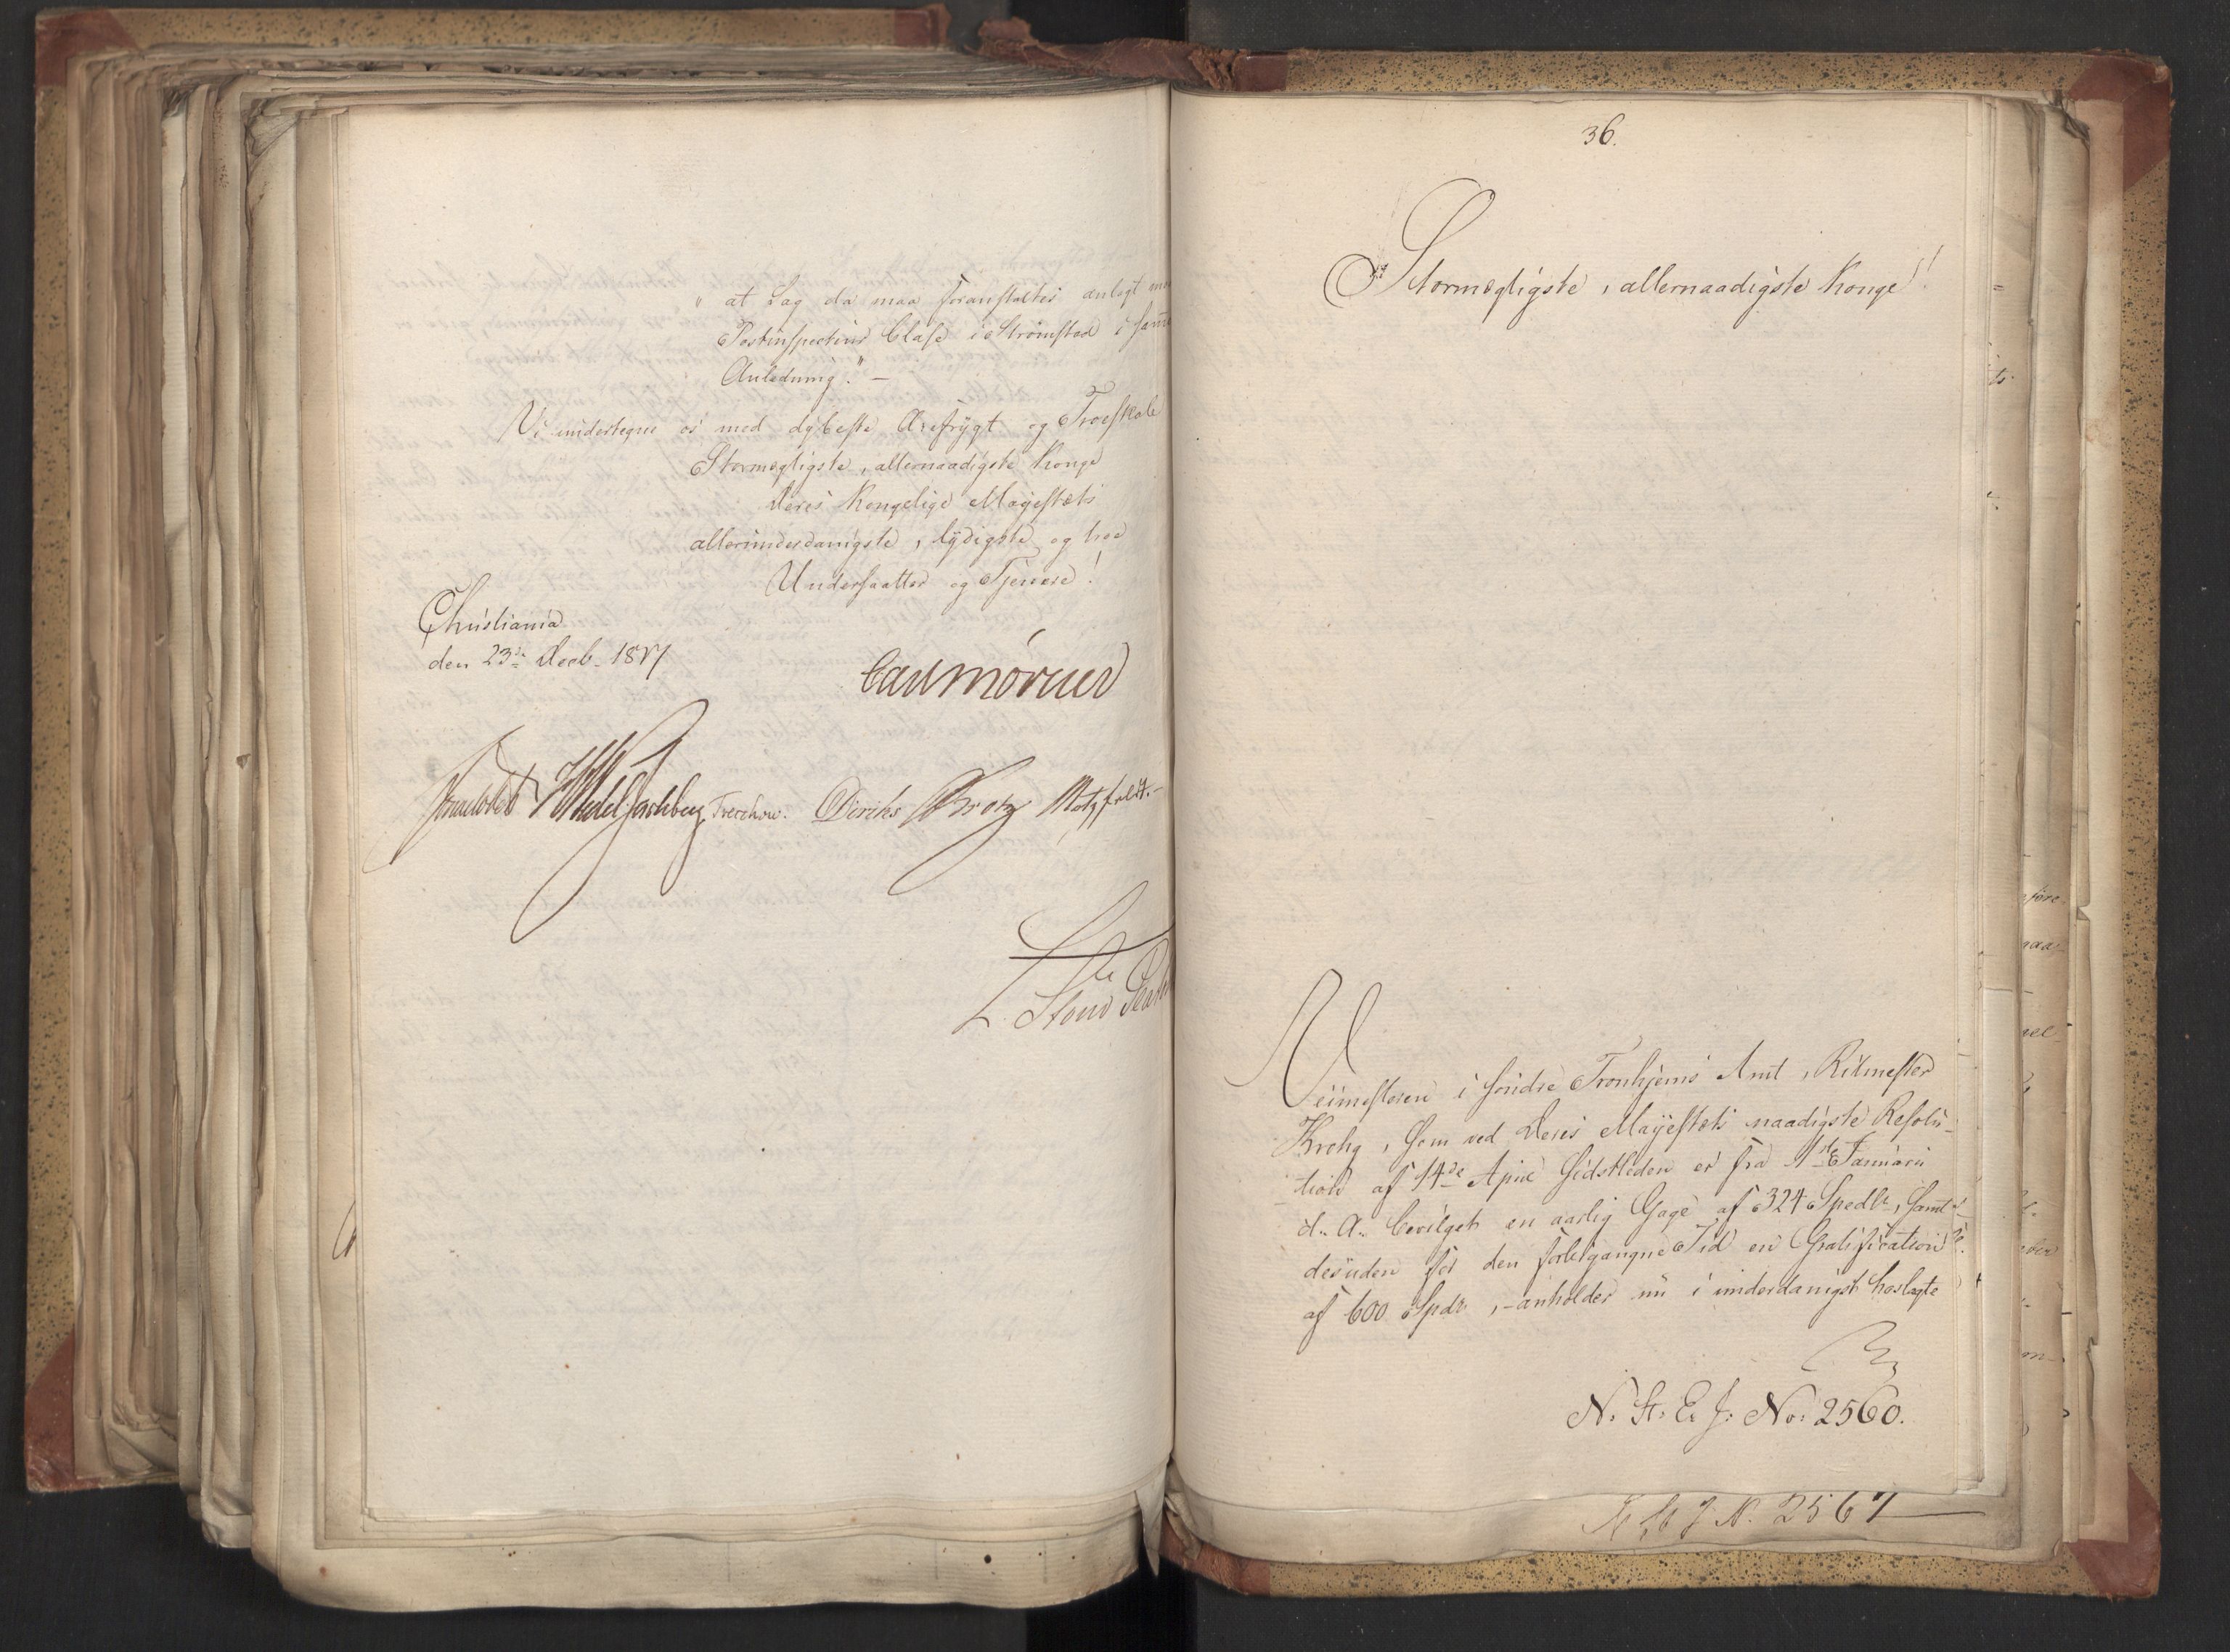 " at Sag da maa foranstaltes anlagt
Postinspecteur Clase i Strømstad i samme
Anledning." —
Vi undertegne os med dybeste Ærefrygt og Troeskab
Stormægtigste, allernaadigste Konge
Deres Kongelige Mayestæts
allerunderdanigste, lydigste og troe
Undersaatter og Tjenere!
Christiania
den 23de Decb. 1817
Carl Mörner
Sommerhielm HWedelJarlsberg Treschow. Diriks Krog Motzfeldt.
L. Stoud Platou
36.
Stormægtigste, allernaadigste Konge!
Veimesteren i søndre Tronhjems Amt, Ritmester
Krohg, som ved Deres Mayestæts naadigste Resolu-
tion af 14de April sidstleden er fra 1ste Januarii
d. A. bevilget en aarlig Gage af 324 Spedlr, samt
desuden for den forbigangne Tid en Gratification
af 600 Spdr, - anholder nu i underdanigst hoslagte
N. St. E. J. No: 2560.
J. N. 2567